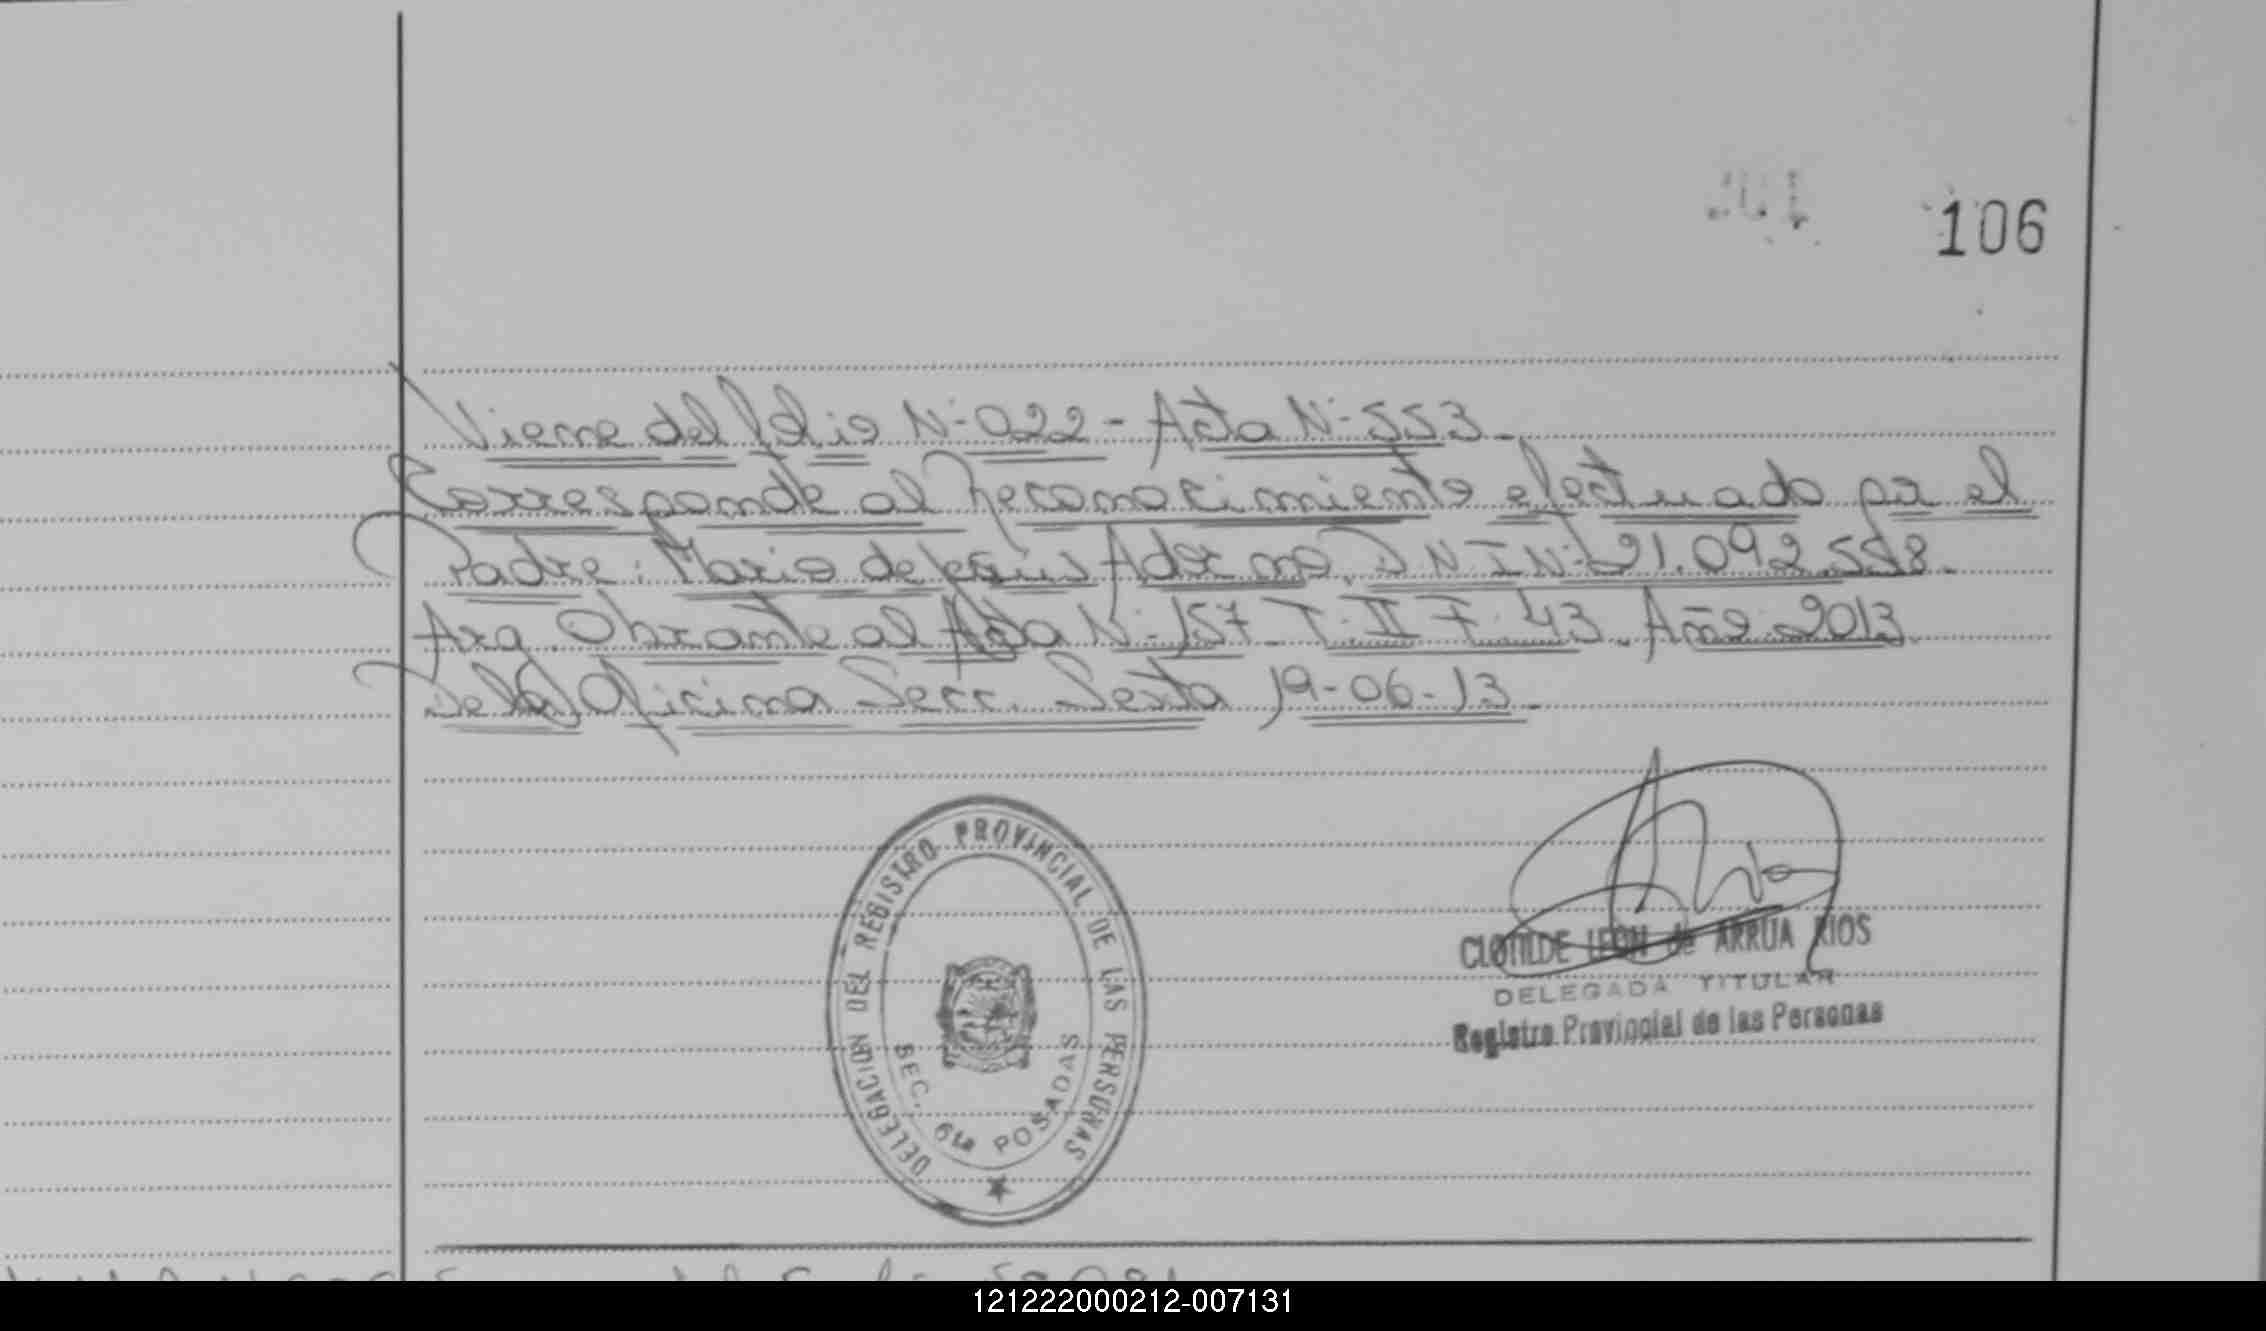 106
Viene del folio N·022 - Acta N·553.
Corresponde al Reconocimiento efectuado por el
Padre: Mario de Jesús Adorno. D.N.I N·21.092.558.
Arg. Obrante al Acta N·157. T.II F.43. Año 2013
De la Oficina Secc. Sexta 19-06-13.
DELEGACION DEL REGISTRO PROVINCIAL DE LAS PERSONAS
SEC. 6ta POSADAS
CLOTILDE LEON de ARRUA RIOS
DELEGADA TITULAR
Registro Provincial de las Personas
121222000212-007131